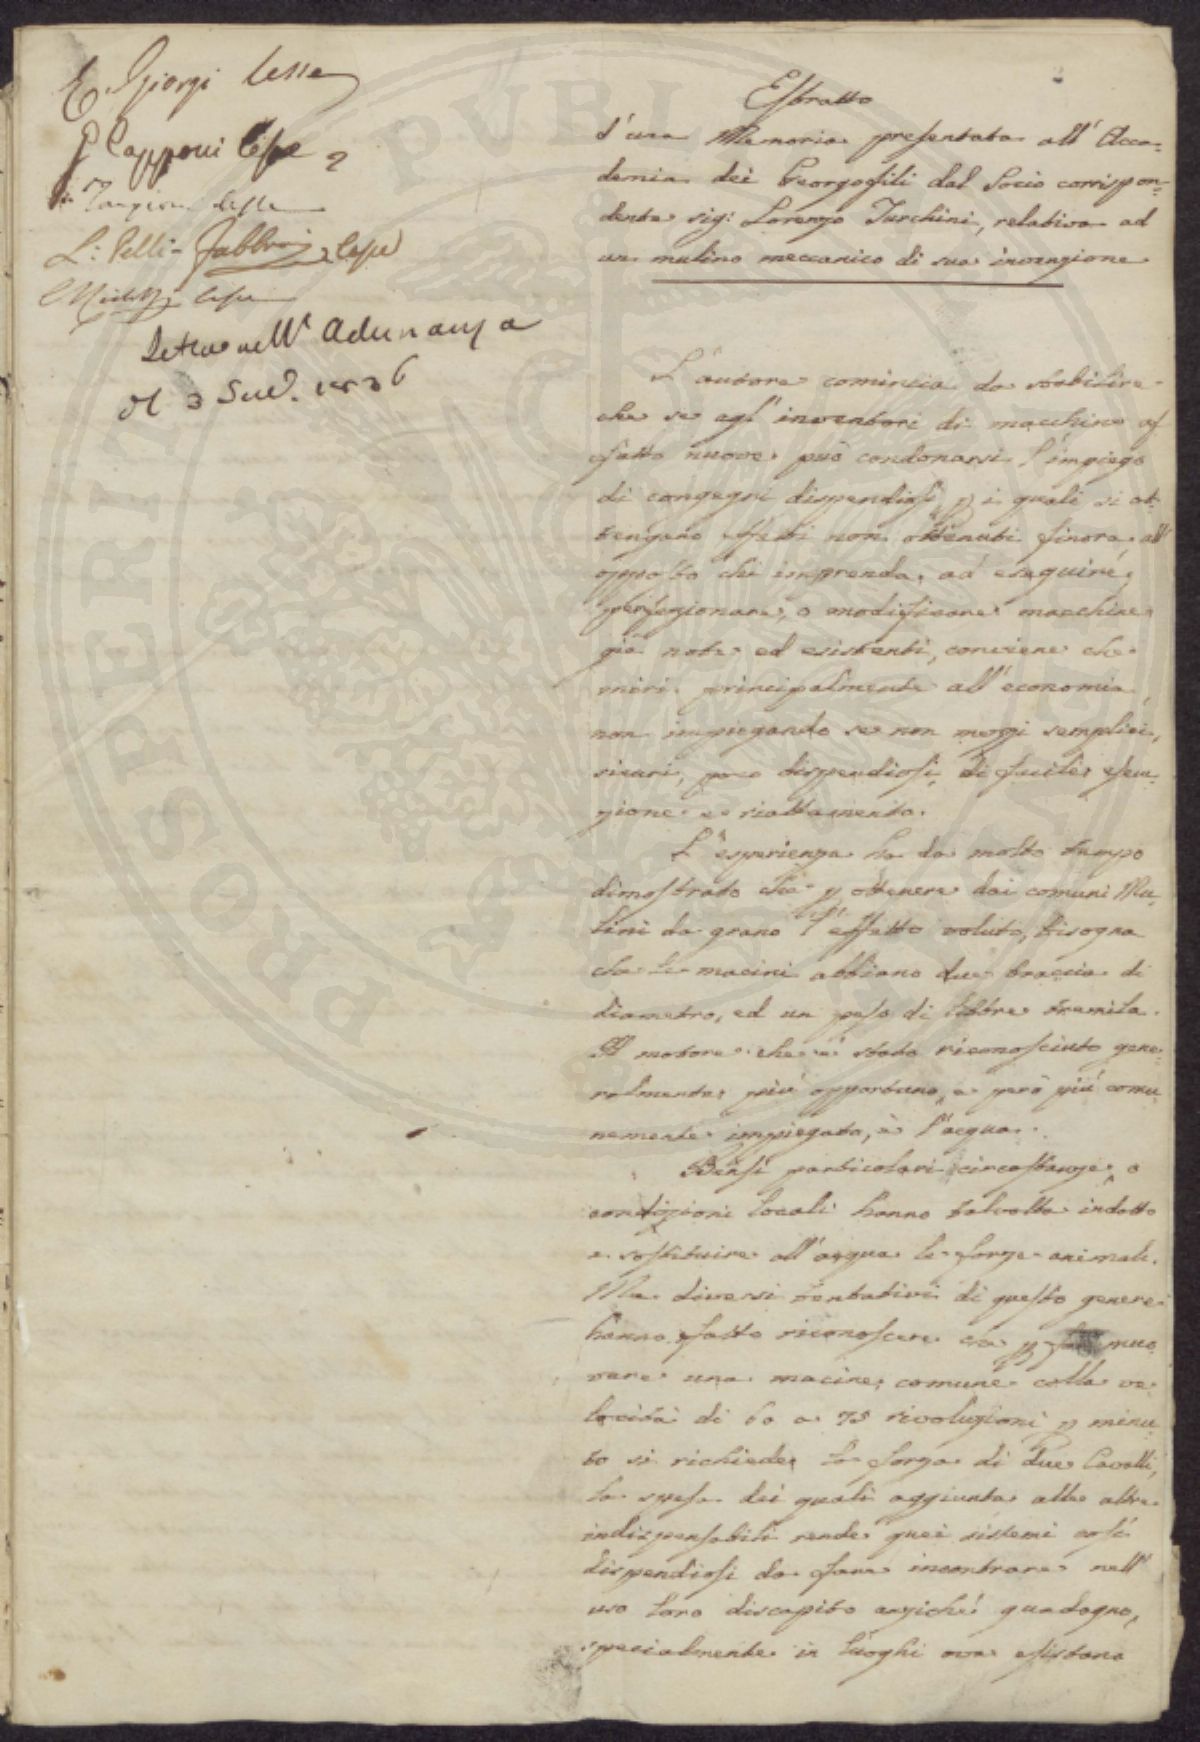 E. Giorgi lesse
G Capponi lesse
Targioni lesse
L: Pelli-Fabbroni lesse
lesse
Letta nell' Adunanza
del 3 1836
Estratto
d'una Memoria presentata all' Acca=
demia dei Georgofili dal Socio corrispon=
dente sig: Lorenzo Turchini, relativa ad
un mulino meccanico di sua invenzione
L'autore comincia da stabilire
che se agl' inventori di macchine af
fatto nuove può condonarsi l'impiego
di congegni dispendiosi p i quali si ot=
tengano effetti non ottenuti finora, all'
opposto chi imprenda, ad eseguire,
perfezionare, o modificare macchine
già note ed esistenti, conviene che
miri principalmente all'economia,
non impiegando se non mezzi semplici,
sicuri, poco dispendiosi, di facile esecu=
zione e riattamento.
L'esperienza ha da molto tempo
dimostrato che p ottenere dai comuni Mu=
lini da grano l'effetto voluto, bisogna
che le macini abbiano due braccia di
diametro, ed un peso di libbre tremila.
Il motore che è stato riconosciuto gene=
ralmente più opportuno, e però più comu
nemente impiegato, è l'acqua.
Bensì particolari circostanze, o
condizioni locali hanno talvolta indotto
a sostituire all'acqua le forze animali.
Ma diversi tentativi di questo genere
hanno fatto riconoscere che p far muo
vere una macine comune colla ve=
locità di 60 a 75 rivoluzioni p minu=
to si richiede la forza di due Cavalli,
la spesa dei quali aggiunta alle altre
indispensabili rende quei sistemi così
dispendiosi da fare incontrare nell'
uso loro discapito anziché guadagno,
specialmente in luoghi ove esistano